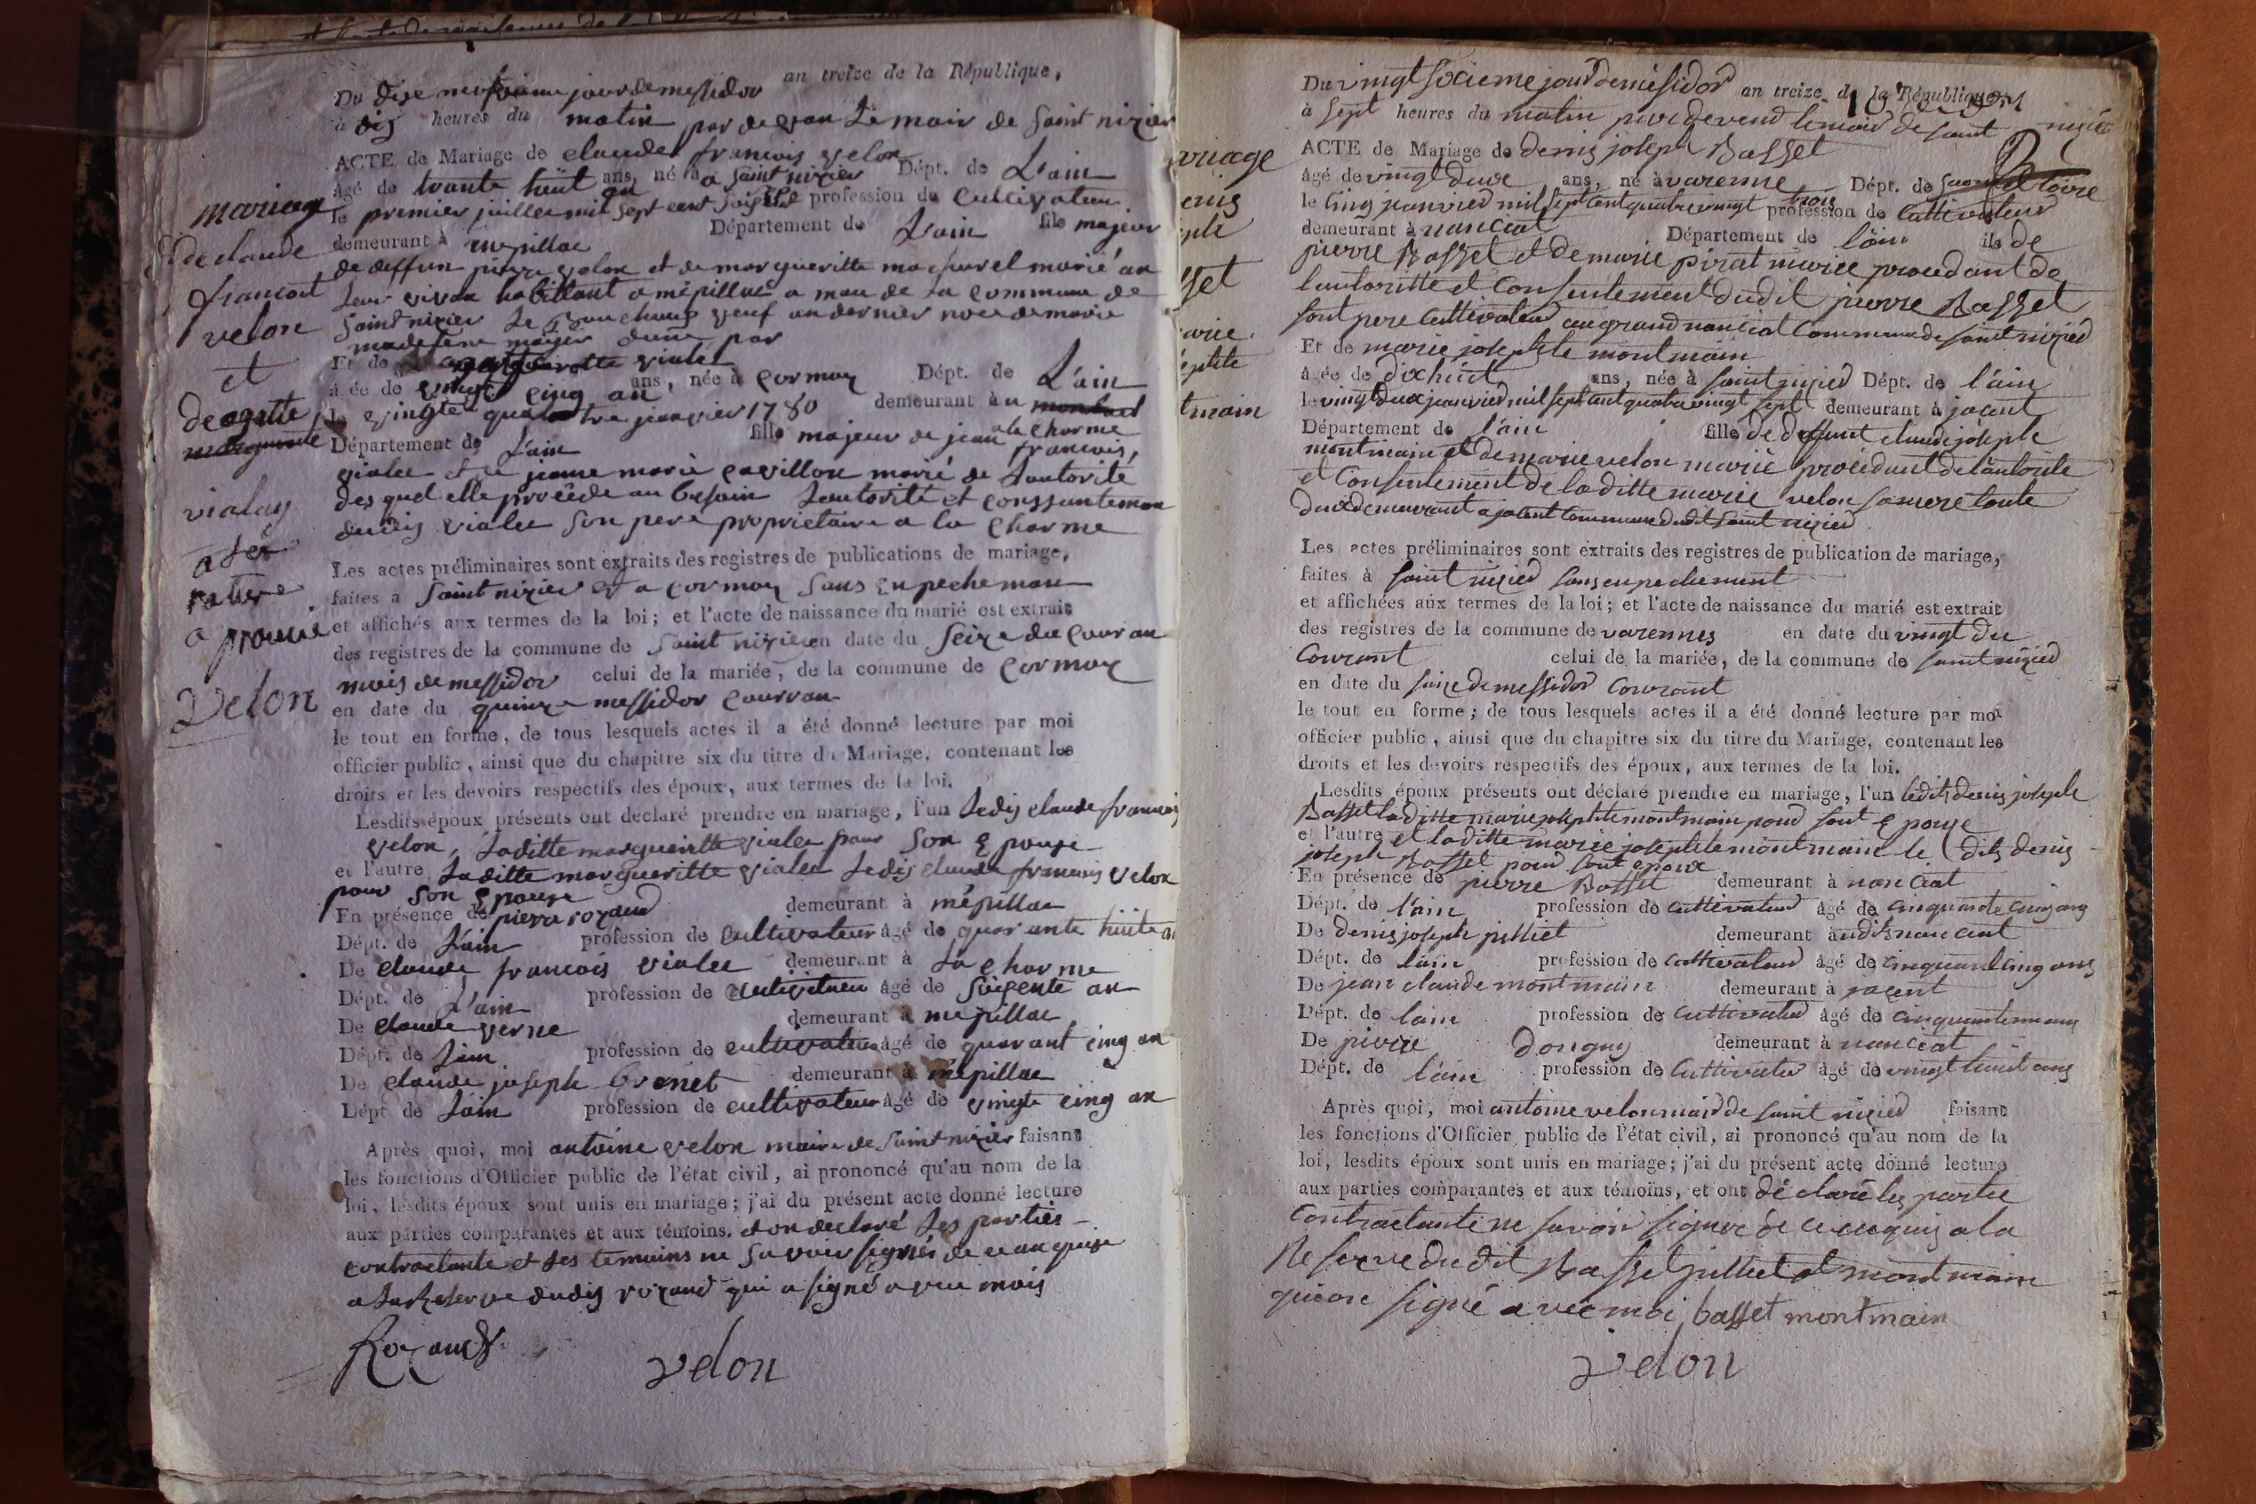 Du dise neufvieme jour de messidor an treize de la République,
à dis heures du matin par devan Le maire de saint nizier
ACTE de Mariage de claude francois velon
âgé de trante huit an ans, né à a saint nizier Dépt. de L'ain
le premier juillee mil sept cent soisente profession de cultivateur
demeurant à mepillac Département de L'ain fils majeur
de deffun pierre velon et de margueritte mariè au
leur vivan habittant a mépillac a maude la commune de
saint nizier Le veuf an dernier noce de marie
madelene
Et de margueritte vialet
âgée de vingt cinq an ans, née à cormoz Dépt. de L'ain
le vingte quatre janvier 1780 demeurant à
Département de L'ain fille majeur de jean francois, a la charme
vialee et de jeanne marie cavillon marié de Lautorité
desquel elle procède au besoin Lautorité et conssantemen
dudis vialee son pere proprietaire a la charme
Les actes préliminaires sont extraits des registres de publications de mariage,
faites à saint nizier et a cormoz sans enpecheman
et affichés aux termes de la loi; et l'acte de naissance du marié est extrait
des registres de la commune de saint nizier en date du seize du couran
mois de messidor celui de la mariée, de la commune de cormoz
en date du quinze messidor courran
le tout en forme, de tous lesquels actes il a été donné lecture par moi
officier public, ainsi que du chapitre six du titre du Mariage, contenant les
droits et les devoirs respectifs des époux, aux termes de la loi.
Lesdits époux présents ont declaré prendre en mariage, l'un Ledis claude francois
velon, Laditte margueritte vialee pour son epouse
et l'autre Laditte margueritte vialee Ledis claude francois velon
pour son epouse
En présence de pierre rozand demeurant à mépillac
Dépt. de L'ain profession de cultivateur âgé de quarante huite an
De claude francois vialee demeurant à La charme
Dépt. de L'ain profession de cultivateur âgé de soisente an
De claude verne demeurant à mepillac
Dépt. de L'ain profession de cultivateur âgé de quarant cinq an
De claude joseph brenet demeurant à mépillac
Dépt. de L'ain profession de cultivateur âgé de vingte cinq an
Après quoi, moi antoine velon maire de saint nizier faisant
les fonctions d'Officier public de l'état civil, ai prononcé qu'au nom de la
loi, lesdits époux sont unis en mariage; j'ai du présent acte donné lecture
aux parties comparantes et aux témoins. et on declaré Les parties
contractante et Les temoins ne savoir signer de ce anquise
a La Reserve dudis rozand qui a signé avec mois
Rozand
velon
mariage
de claude
francois
velon
et
de agatte
margueritte
vialay
a prouvé
velon
Du vingt sixieme jour de mesidor an treize de la République
à sept heures du matin par devend le maire de saint nizié
ACTE de Mariage de denis joseph Basset
âgé de vingt deux ans, né à varenne Dépt. de saone et loire
le cinq janvied mil sept cent quatre vingt trois profession de cultivateur
demeurant à nanciat Département de l'ain ils de
pierre Basset et de marie pirat mariee procedant de
lautoritte et consentement dudit pierre Basset
sont pere cultivateur au grand nanciat commune de saint nizied
Et de marie josephte montmain
âgée de dix huit ans, née à saint nizied Dépt. de l'ain
le vingt deux janvied mil sept cent quatre vingt sept demeurant à jacent
Département de l'ain fille de deffunt claude josephe
montmain et de marie velon mariée procèdant de lautorite
et consentement de laditte marie velon sa mere toute
deux demeurant a jacent commune dudit saint nizied
Les actes préliminaires sont extraits des registres de publication de mariage,
faites à saint nizied sans enpechement
et affichées aux termes de la loi; et l'acte de naissance du marié est extrait
des registres de la commune de varennes en date du vingt du
courant celui de la mariée, de la commune de saint nizied
en date du saize de messidor courant
le tout en forme; de tous lesquels actes il a été donné lecture par moi
officier public, ainsi que du chapitre six du titre du Mariage, contenant les
droits et les devoirs respectifs des époux, aux termes de la loi.
Lesdits époux présents ont déclaré prendre en mariage, l'un ledit denis josephe
Basset laditte marie josephte montmain pour sont epouse
et l'autre et laditte marie josephte montmain le dits denis
joseph Basset pour sont epoux
En présence de pierre Basset demeurant à nanciat
Dépt. de l'ain profession de cultivateur âgé de cinquante cinq ans
De denis joseph pilliet demeurant à udits nanciat
Dépt. de l'ain profession de cultivateur âgé de cinquante cinq ans
De jean claude montmain demeurant à jacent
Dépt. de l'ain profession de cultivateur âgé de
De pierre dongny demeurant à nanciat
Dépt. de l'ain profession de cultivateur âgé de vingt huit ans
Après quoi, moi antoine velon maire de saint nizied faisant
les fonctions d'Officier public de l'état civil, ai prononcé qu'au nom de la
loi, lesdits époux sont unis en mariage; j'ai du présent acte donné lecture
aux parties comparantes et aux témoins, et ont déclaré les partie
contractante ne savoir signer de ce requis a la
Reserve dudit Basset pilliet et montmain
qui on signé avec moi basset montmain
velon